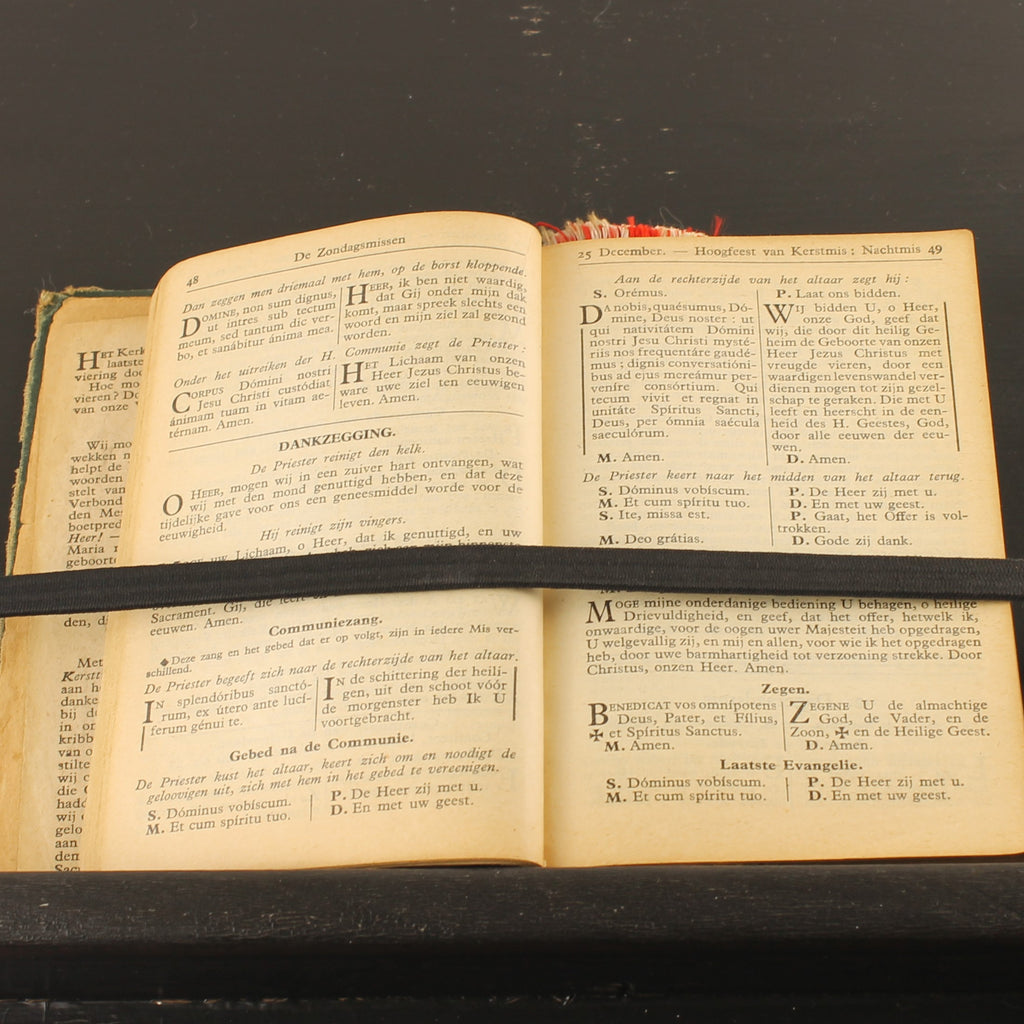 HET Kerk
laatste
viering doo
Hoe mo
vieren? Do
van onze
Wij mo
wekken n
helpt de
woorden
stelt van
Verbond
den Mes
boetpred
Heer! —
Maria
geboort
den, d
Met
Kerstt
aan h
danke
bij d
in or
kribb
van o
stilte
wij c
die
hadd
wij
gelo
aan
den
Sac
48
De Zondagsmissen
Dan zeggen men driemaal met hem, op de borst kloppende.
DOMINE, non sum dignus,
ut intres sub tectum
meum, sed tantum dic ver-
bo, et sanábitur ánima mea.
HEER, ik ben niet waardig,
dat Gij onder mijn dak
komt, maar spreek slechts een
woord en mijn ziel zal gezond
worden.
Onder het uitreiken der H. Communie zegt de Priester:
CORPUS Dómini nostri
Jesu Christi custódiat
ánimam tuam in vitam ae-
térnam. Amen.
HET Lichaam van onzen
Heer Jezus Christus be-
ware uwe ziel ten eeuwigen
leven. Amen.
DANKZEGGING.
De Priester reinigt den kelk.
O HEER, mogen wij in een zuiver hart ontvangen, wat
wij met den mond genuttigd hebben, en dat deze
tijdelijke gave voor ons een geneesmiddel worde voor de
eeuwigheid.
Hij reinigt zijn vingers.
uw Lichaam, o Heer, dat ik genuttigd, en uw
Sacrament. Gij, die
eeuwen. Amen.
Communiezang.
◆ Deze zang en het gebed dat er op volgt, zijn in iedere Mis ver-
schillend.
De Priester begeeft zich naar de rechterzijde van het altaar.
IN splendóribus sanctó-
rum, ex útero ante lucí-
ferum génui te.
IN de schittering der heili-
gen, uit den schoot vóór
de morgenster heb Ik U
voortgebracht.
Gebed na de Communie.
De Priester kust het altaar, keert zich om en noodigt de
geloovigen uit, zich met hem in het gebed te vereenigen.
S. Dóminus vobíscum.
M. Et cum spíritu tuo.
P. De Heer zij met u.
D. En met uw geest.
25 December. — Hoogfeest van Kerstmis: Nachtmis 49
Aan de rechterzijde van het altaar zegt hij:
S. Orémus.
P. Laat ons bidden.
DA nobis, quaésumus, Dó-
mine, Deus noster: ut
qui nativitátem Dómini
nostri Jesu Christi mysté-
riis nos frequentáre gaudé-
mus; dignis conversatióni-
bus ad ejus mereámur per-
veníre consórtium. Qui
tecum vivit et regnat in
unitáte Spíritus Sancti,
Deus, per ómnia saécula
saeculórum.
M. Amen.
WIJ bidden U, o Heer,
onze God, geef dat
wij, die door dit heilig Ge-
heim de Geboorte van onzen
Heer Jezus Christus met
vreugde vieren, door een
waardigen levenswandel ver-
dienen mogen tot zijn gezel-
schap te geraken. Die met U
leeft en heerscht in de een-
heid des H. Geestes, God,
door alle eeuwen der eeu-
wen.
D. Amen.
De Priester keert naar het midden van het altaar terug.
S. Dóminus vobíscum.
M. Et cum spíritu tuo.
S. Ite, missa est.
M. Deo grátias.
P. De Heer zij met u.
D. En met uw geest.
P. Gaat, het Offer is vol-
trokken.
D. Gode zij dank.
MOGE mijne onderdanige bediening U behagen, o heilige
Drievuldigheid, en geef, dat het offer, hetwelk ik,
onwaardige, voor de oogen uwer Majesteit heb opgedragen,
U welgevallig zij, en mij en allen, voor wie ik het opgedragen
heb, door uwe barmhartigheid tot verzoening strekke. Door
Christus, onzen Heer. Amen.
Zegen.
BENEDICAT vos omnípotens
Deus, Pater, et Fílius,
✠ et Spíritus Sanctus.
M. Amen.
ZEGENE U de almachtige
God, de Vader, en de
Zoon, ✠ en de Heilige Geest.
D. Amen.
Laatste Evangelie.
S. Dóminus vobíscum.
M. Et cum spíritu tuo.
P. De Heer zij met u.
D. En met uw geest.